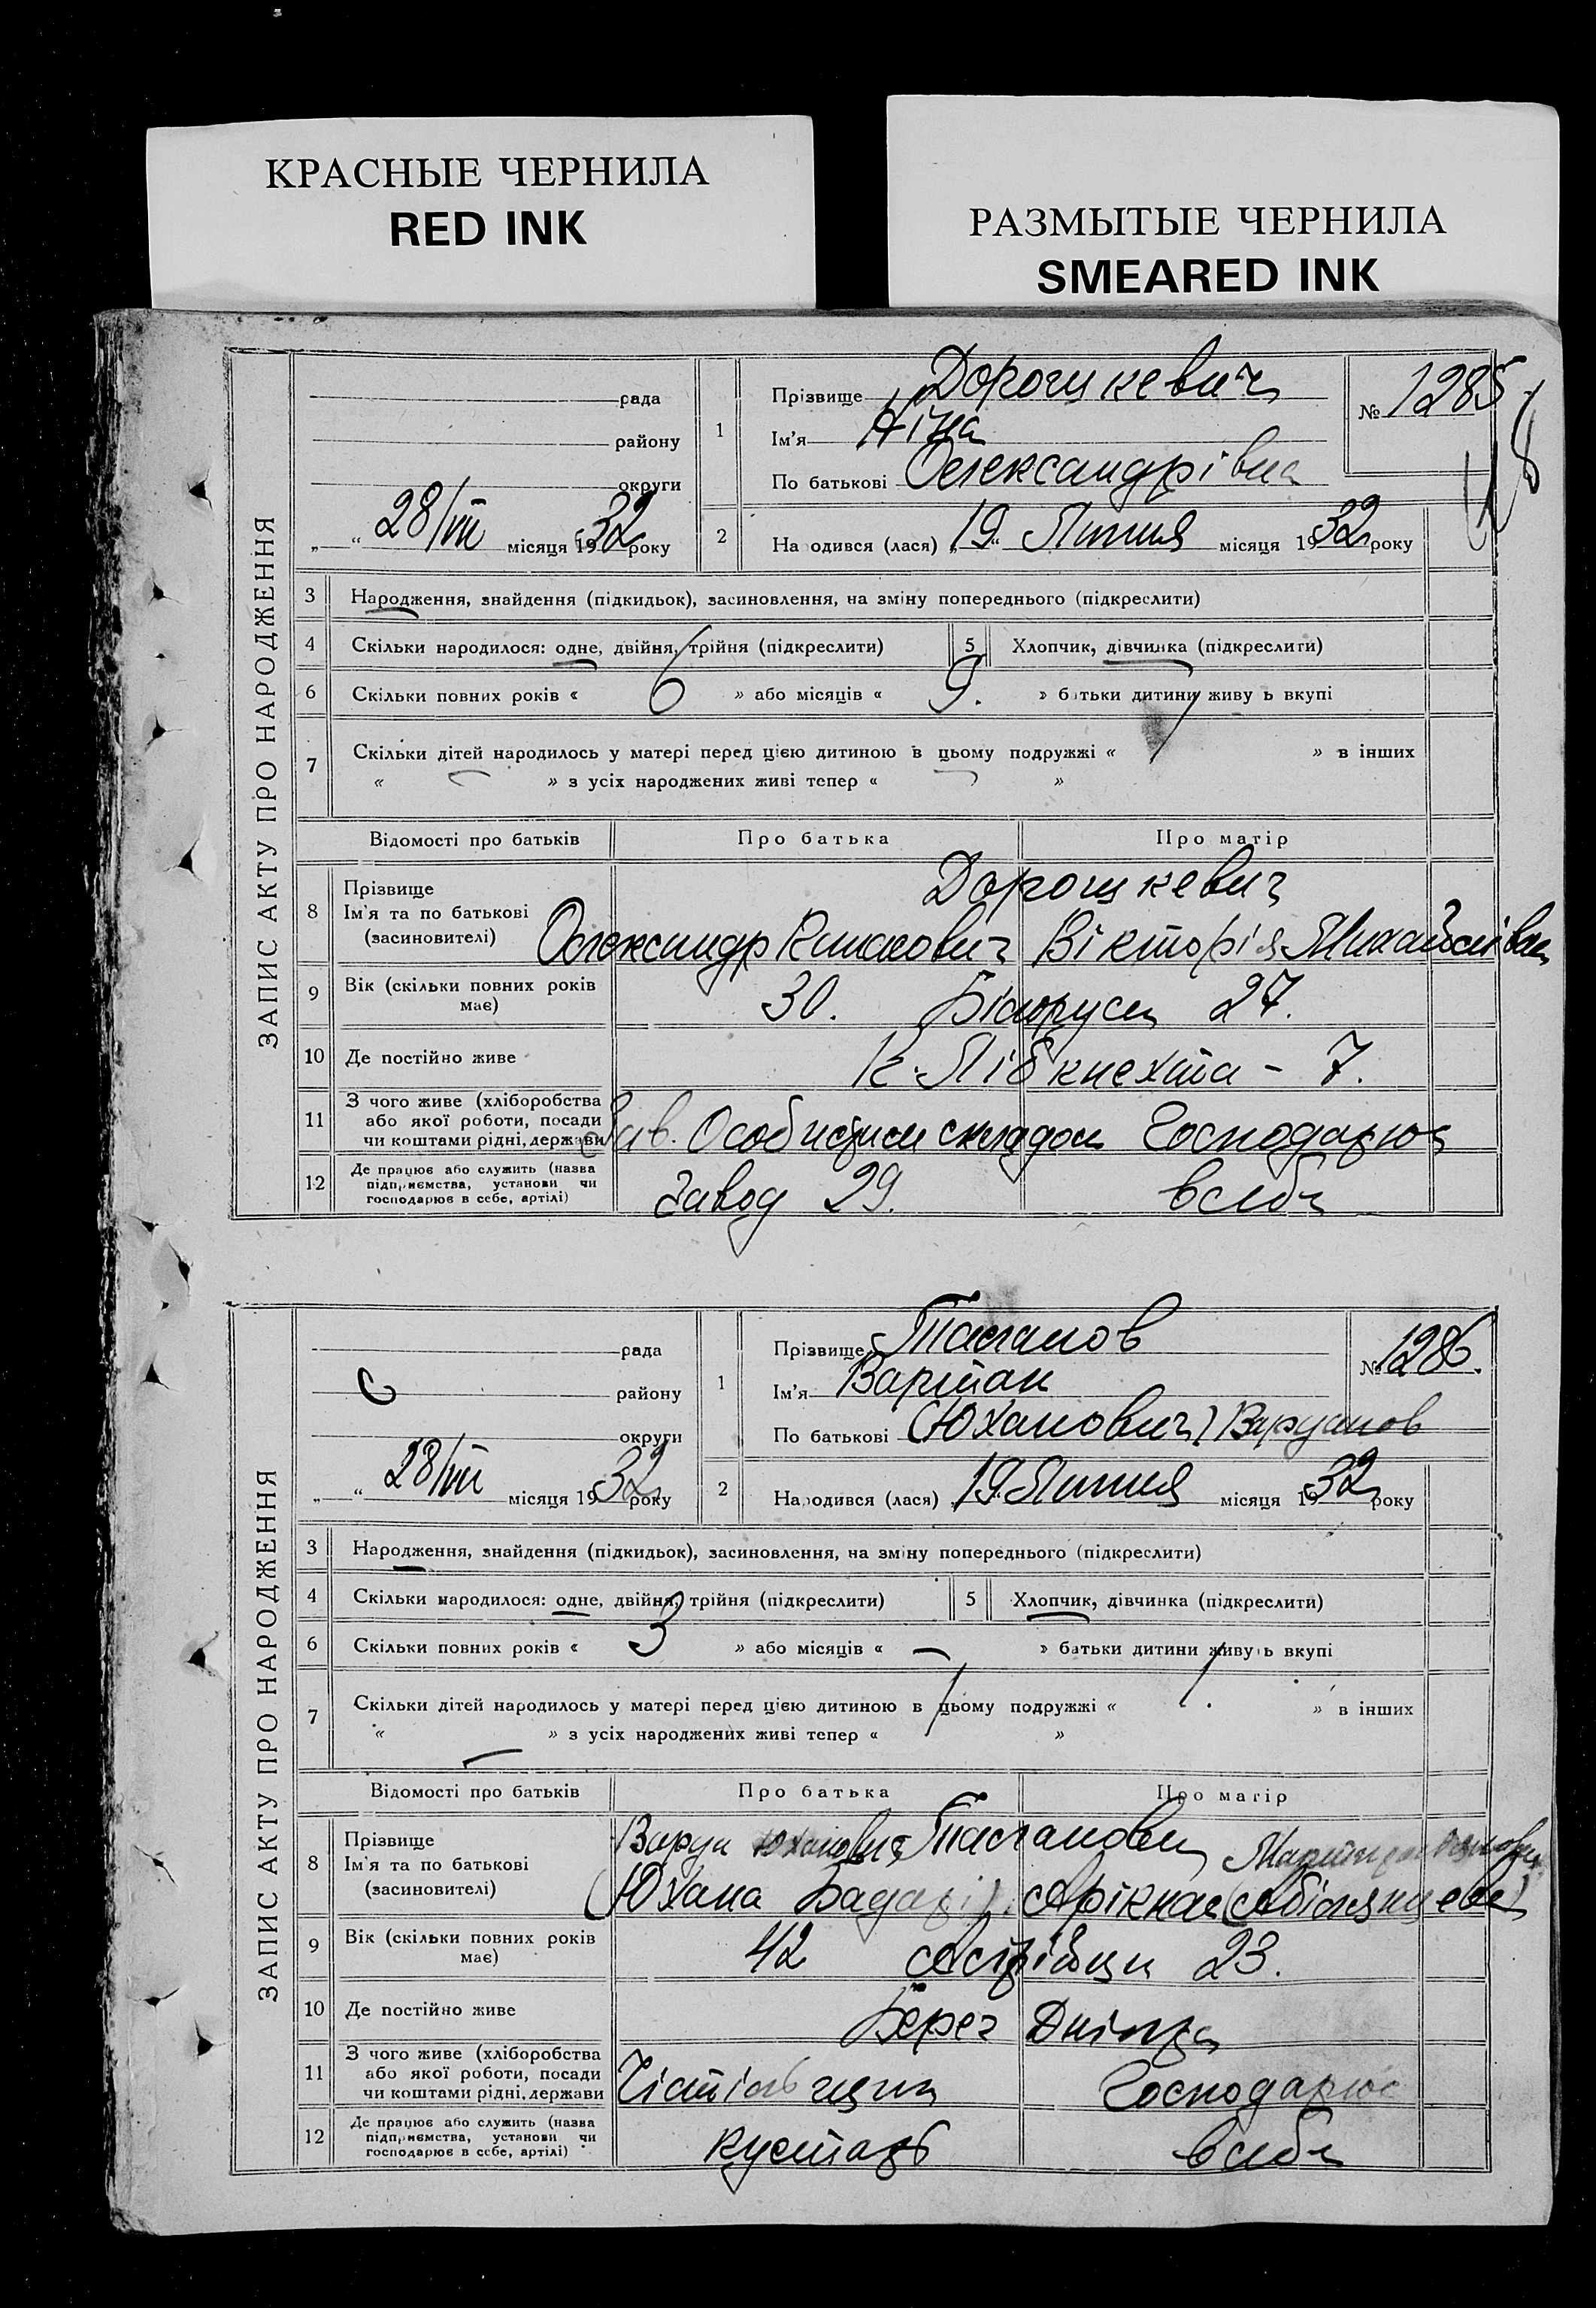 КРАСНЫЕ ЧЕРНИЛА
RED INK
РАЗМЫТЫЕ ЧЕРНИЛА
SMEARED INK
ЗАПИС АКТУ ПРО НАРОДЖЕННЯ
рада
району
округи
„ “ 28/VIII місяця 1932 року
1
Прізвище Дорошкевич
Ім'я Ніна
По батькові Олександрівна
№ 1285
2 На одився (лася) „19“ Липня місяця 1932 року
3 Народження, знайдення (підкидьок), засиновлення, на зміну попереднього (підкреслити)
4 Скільки народилося: одне, двійня, трійня (підкреслити) 5 Хлопчик, дівчинка (підкреслити)
6 Скільки повних років « 6 » або місяців « 9. » батьки дитини живу ь вкупі
7 Скільки дітей народилось у матері перед цією дитиною в цьому подружжі « » в інших
« » з усіх народжених живі тепер « »
Відомості про батьків Про батька Про матір
8 Прізвище
Ім'я та по батькові
(засиновителі)
Дорошкевич
Олександр Вікторія Михайлівна
9 Вік (скільки повних років має) 30. Білоруси 27.
10 Де постійно живе К. Лібкнехта - 7.
11 З чого живе (хліборобства або якої роботи, посади чи коштами рідні, держави) Зав. Особистим складом Господарює
12 Де працює або служить (назва підприємства, установи чи господарює в себе, артілі) Завод 29. в себе
ЗАПИС АКТУ ПРО НАРОДЖЕННЯ
рада
району
округи
„ “ 28/VIII місяця 1932 року
1
Прізвище
Ім'я Вартан
По батькові (Юханович) Варуанов
№ 1286.
2 Народився (лася) 19 Липня місяця 1932 року
3 Народження, знайдення (підкидьок), засиновлення, на зміну попереднього (підкреслити)
4 Скільки народилося: одне, двійня, трійня (підкреслити) 5 Хлопчик, дівчинка (підкреслити)
6 Скільки повних років « 3 » або місяців « — » батьки дитини живуть вкупі
7 Скільки дітей народилось у матері перед цією дитиною в цьому подружжі « » в інших
« » з усіх народжених живі тепер « »
Відомості про батьків Про батька Про матір
8 Прізвище
Ім'я та по батькові
(засиновителі)
Юханович
(Юхана
9 Вік (скільки повних років має) 42 23.
10 Де постійно живе Берег Дніпра
11 З чого живе (хліборобства або якої роботи, посади чи коштами рідні, держави Господарює
12 Де працює або служить (назва підприємства, установи чи господарює в себе, артілі) кустарь в себе